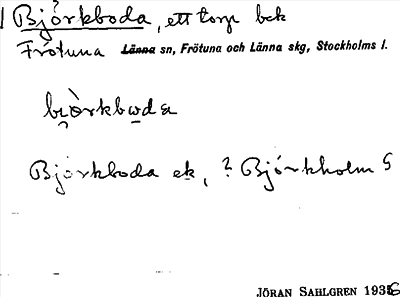 Björkboda, ett torp bek
Frötuna Länna sn, Frötuna och Länna skg, Stockholms l.
bjòrkbωda
Björkboda ek, ? Björkholm G
JÖRAN SAHLGREN 1936